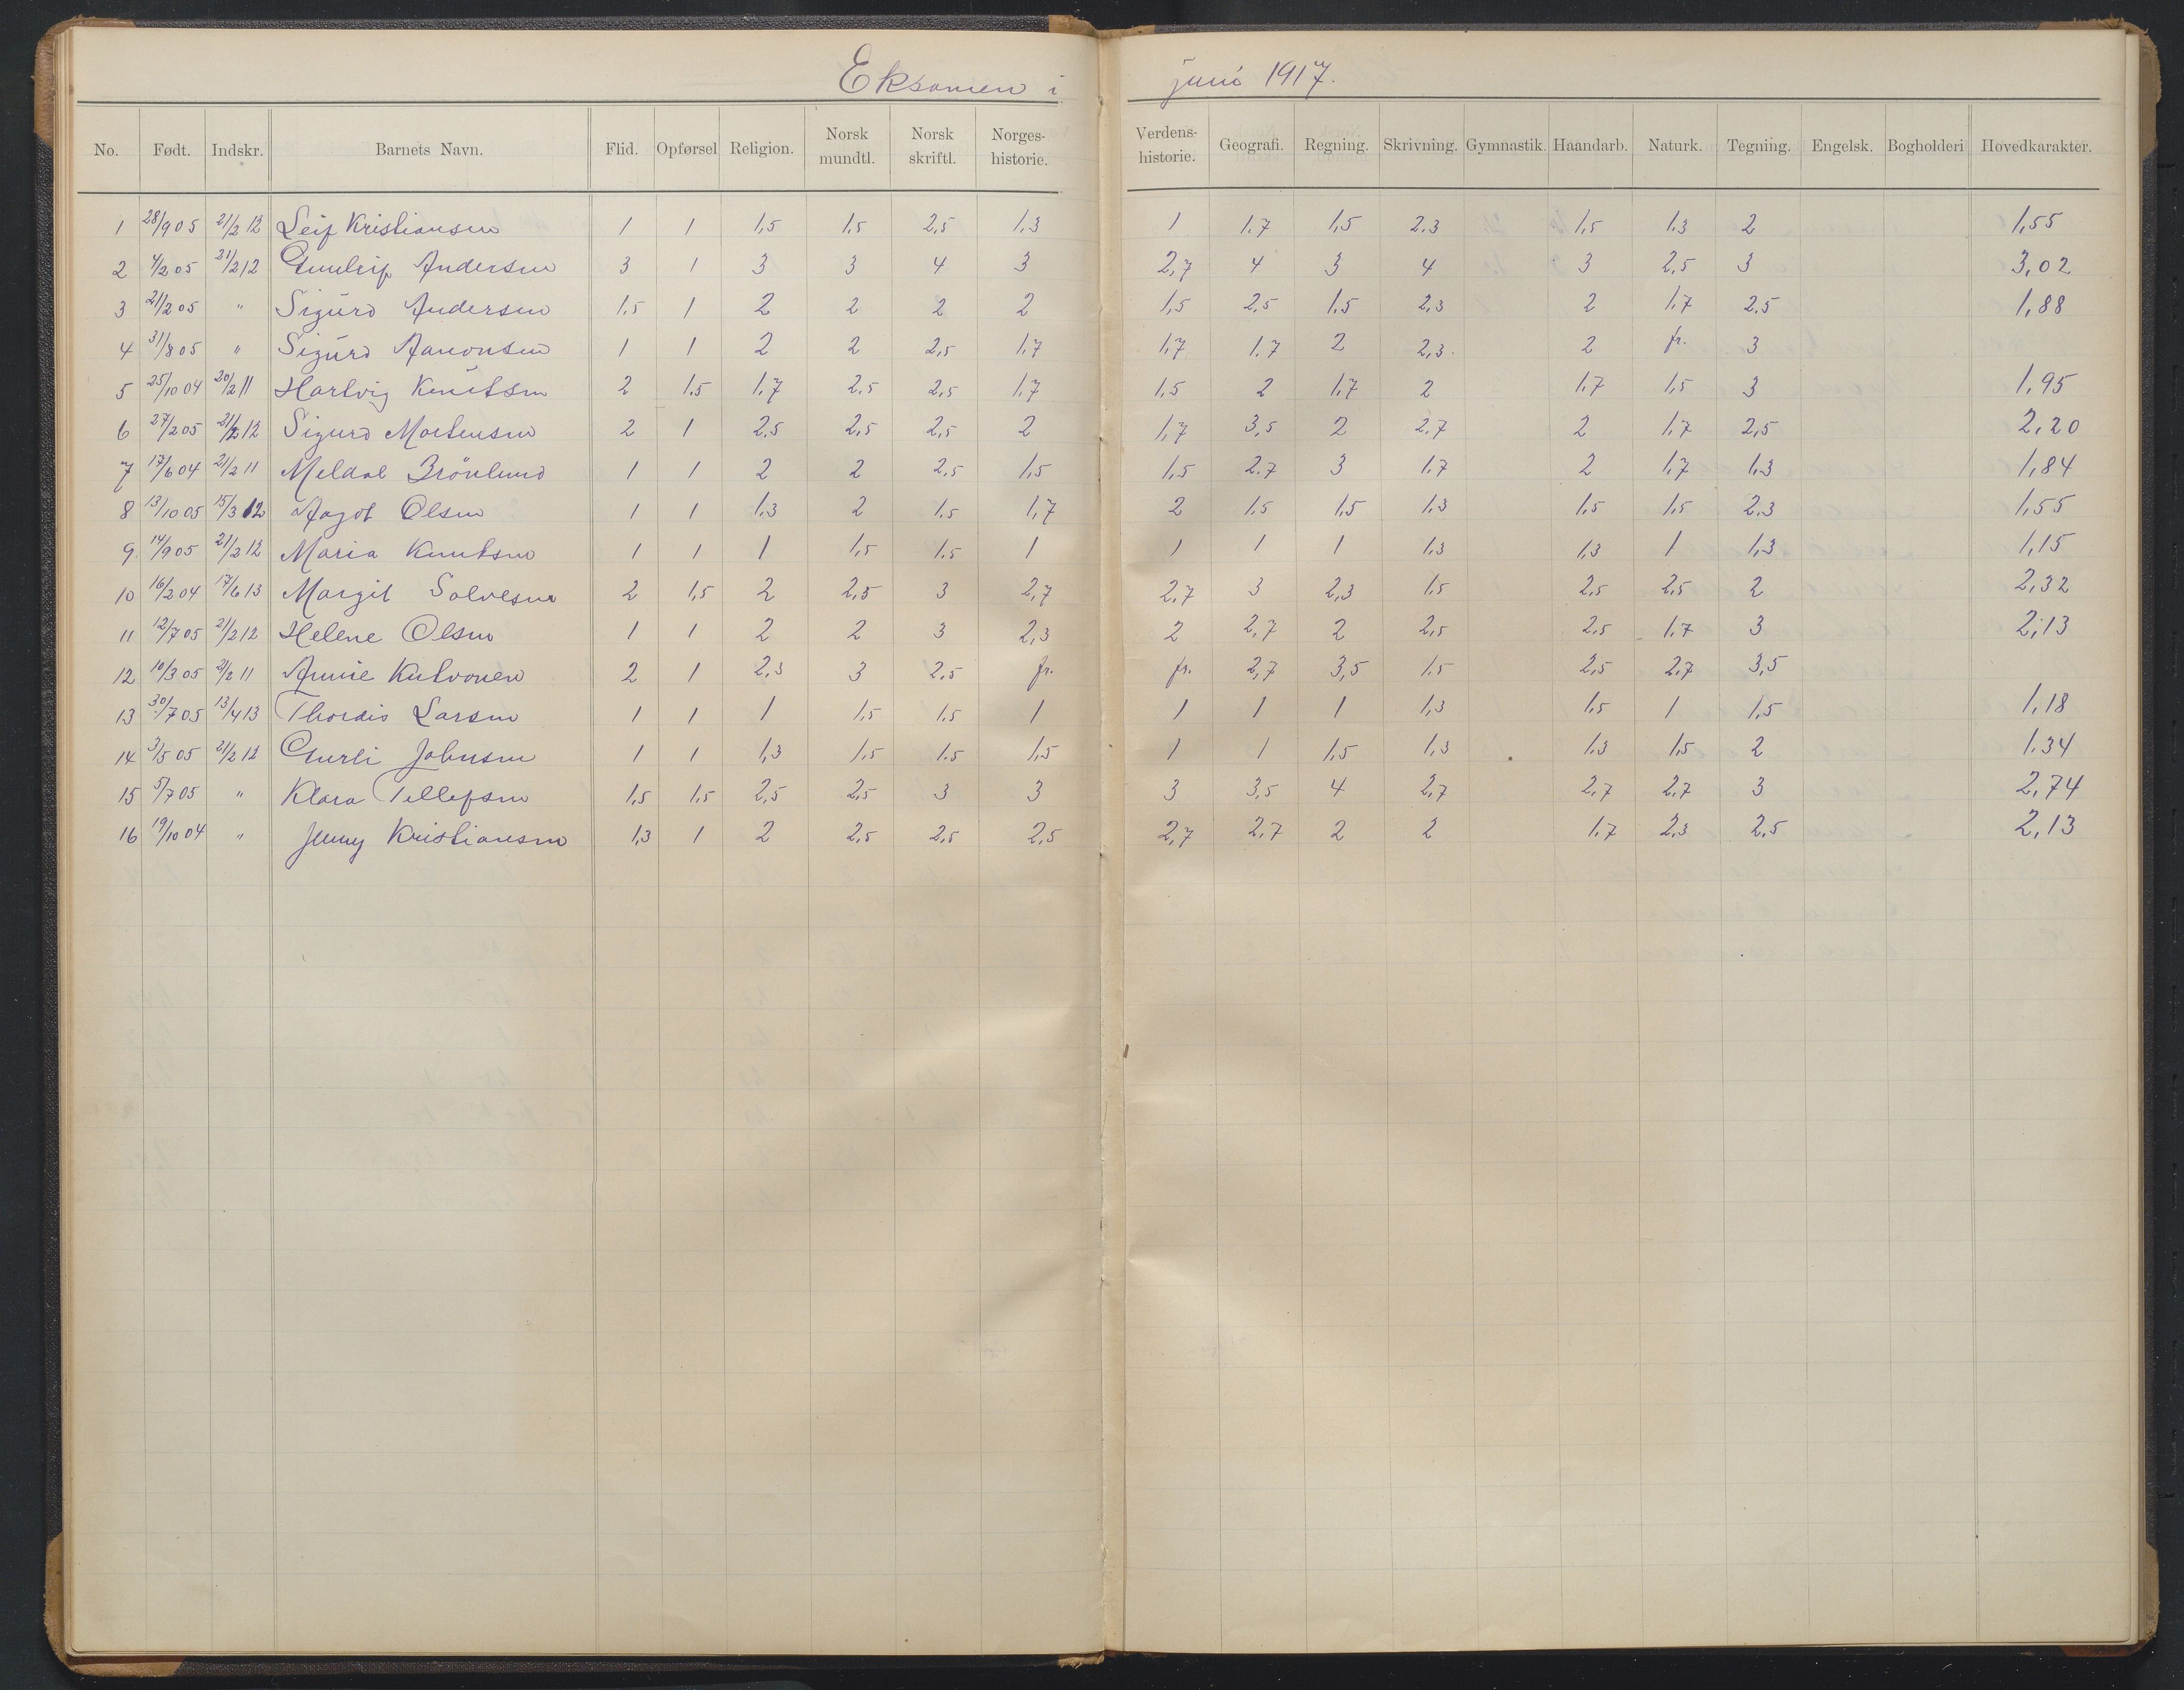 Eksamen i juni 1917.
No. Født. Indskr. Barnets Navn. Flid. Opførsel Religion. Norsk mundtl. Norsk skriftl. Norges-historie. Verdens-historie. Geografi. Regning. Skrivning. Gymnastik. Haandarb. Naturk. Tegning. Engelsk. Bogholderi Hovedkarakter.
1 28/9 05 21/2 12 Leif Kristiansen 1 1 1,5 1,5 2,5 1,3 1 1,7 1,5 2,3 1,5 1,3 2 1,55
2 4/2 05 21/2 12 Gunleif Andersen 3 1 3 3 4 3 2,7 4 3 4 3 2,5 3 3,02
3 21/2 05 " Sigurd Andersen 1,5 1 2 2 2 2 1,5 2,5 1,5 2,3 2 1,7 2,5 1,88
4 31/8 05 " Sigurd Aanonsen 1 1 2 2 2,5 1,7 1,7 1,7 2 2,3. 2 fr. 3
5 25/10 04 20/2 11 Hartvig Knutsen 2 1,5 1,7 2,5 2,5 1,7 1,5 2 1,7 2 1,7 1,5 3 1,95
6 27/2 05 21/2 12 Sigurd Mortensen 2 1 2,5 2,5 2,5 2 1,7 3,5 2 2,7 2 1,7 2,5 2,20
7 17/6 04 21/2 11 Meldal Brönlund 1 1 2 2 2,5 1,5 1,5 2,7 3 1,7 2 1,7 1,3 1,84
8 13/10 05 15/3 12 Aagot Olsen 1 1 1,3 2 1,5 1,7 2 1,5 1,5 1,3 1,5 1,5 2,3 1,55
9. 14/9 05 21/2 12 Maria Knutsen 1 1 1 1,5 1,5 1 1 1 1 1,3 1,3 1 1,3 1,15
10 16/2 04 17/6 13 Margit Salvesen 2 1,5 2 2,5 3 2,7 2,7 3 2,3 1,5 2,5 2,5 2 2,32
11 12/7 05 21/2 12 Helene Olsen 1 1 2 2 3 2,3 2 2,7 2 2,5 2,5 1,7 3 2,13
12 10/3 05 21/2 11 Annie Kulvonen 2 1 2,3 3 2,5 fr. fr. 2,7 3,5 1,5 2,5 2,7 3,5
13 30/7 05 13/4 13 Thordis Larsen 1 1 1 1,5 1,5 1 1 1 1 1,3 1,5 1 1,5 1,18
14 3/5 05 21/2 12 Gurli Johnsen 1 1 1,3 1,5 1,5 1,5 1 1 1,5 1,3 1,3 1,5 2 1.34
15 5/7 05 " Klara Tellefsen 1,5 1,5 2,5 2,5 3 3 3 3,5 4 2,7 2,7 2,7 3 2,74
16 19/10 04 " Jenny Kristiansen 1,3 1 2 2,5 2,5 2,5 2,7 2,7 2 2 1,7 2,3 2,5 2,13